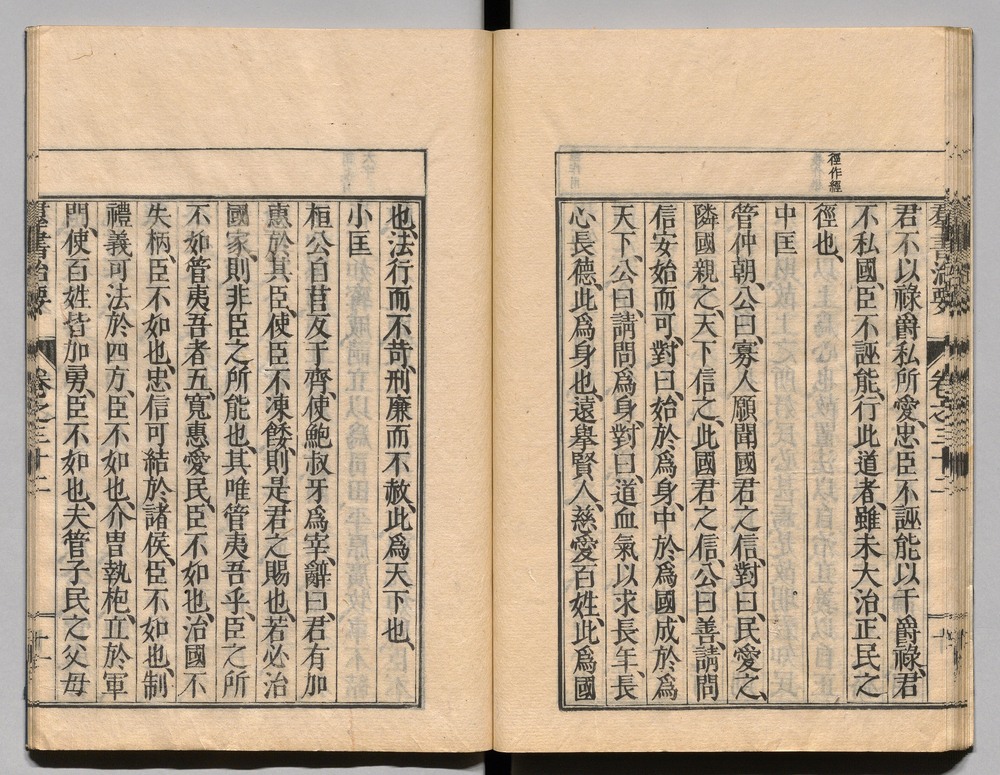 徑作經
群書治要 卷之三十二
君不以祿爵私所愛、忠臣不誣能以干爵祿、君
不私國、臣不誣能、行此道者、雖未大治、正民之
徑也、
中匡
管仲朝、公曰、寡人願聞國君之信、對曰、民愛之、
隣國親之、天下信之、此國君之信、公曰善、請問
信安始而可、對曰、始於爲身、中於爲國、成於爲
天下、公曰、請問爲身、對曰、道血氣以求長年、長
心長德、此爲身也、遠舉賢人、慈愛百姓、此爲國
也、法行而不苛、刑廉而不赦、此爲天下也、
小匡
桓公自莒反于齊、使鮑叔牙爲宰、辭曰、君有加
惠於其臣、使臣不凍餧、則是君之賜也、若必治
國家、則非臣之所能也、其唯管夷吾乎、臣之所
不如管夷吾者五、寬惠愛民、臣不如也、治國不
失柄、臣不如也、忠信可結於諸侯、臣不如也、制
禮義可法於四方、臣不如也、介冑執枹、立於軍
門、使百姓皆加勇、臣不如也、夫管子民之父母
群書治要 卷之三十二 十一